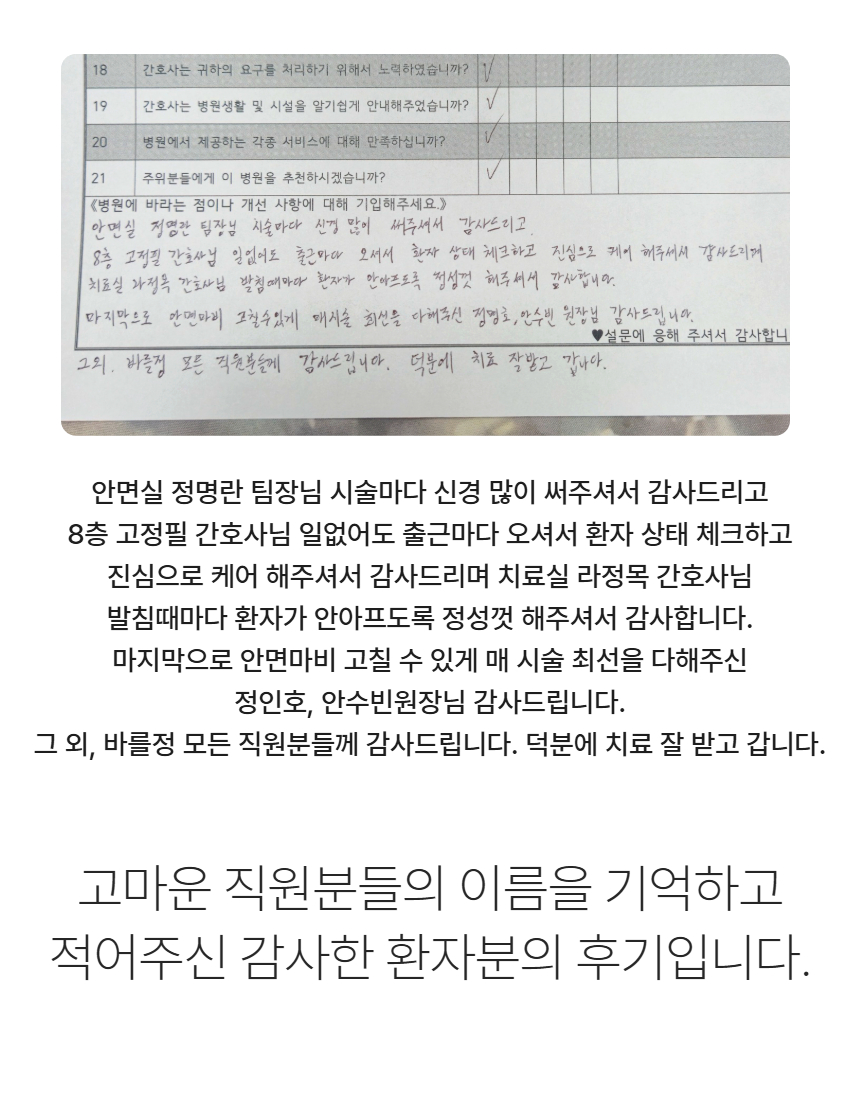 18 간호사는 귀하의 요구를 처리하기 위해서 노력하였습니까?
19 간호사는 병원생활 및 시설을 알기쉽게 안내해주었습니까?
20 병원에서 제공하는 각종 서비스에 대해 만족하십니까?
21 주위분들에게 이 병원을 추천하시겠습니까?
《병원에 바라는 점이나 개선 사항에 대해 기입해주세요.》
안면실 정명란 팀장님 시술마다 신경 많이 써주셔서 감사드리고.
8층 고정필 간호사님 일없어도 출근마다 오셔서 환자 상태 체크하고 진심으로 케어 해주셔서 감사드리며
치료실 라정목 간호사님 발침때마다 환자가 안아프도록 정성껏 해주셔서 감사합니다.
마지막으로 안면마비 고칠수있게 매시술 최선을 다해주신 안수빈 원장님 감사드립니다.
♥설문에 응해 주셔서 감사합니
그외. 바를정 모든 직원분들께 감사드립니다. 덕분에 치료 잘받고 갑니다.
안면실 정명란 팀장님 시술마다 신경 많이 써주셔서 감사드리고
8층 고정필 간호사님 일없어도 출근마다 오셔서 환자 상태 체크하고
진심으로 케어 해주셔서 감사드리며 치료실 라정목 간호사님
발침때마다 환자가 안아프도록 정성껏 해주셔서 감사합니다.
마지막으로 안면마비 고칠 수 있게 매 시술 최선을 다해주신
정인호, 안수빈원장님 감사드립니다.
그 외, 바를정 모든 직원분들께 감사드립니다. 덕분에 치료 잘 받고 갑니다.
고마운 직원분들의 이름을 기억하고
적어주신 감사한 환자분의 후기입니다.